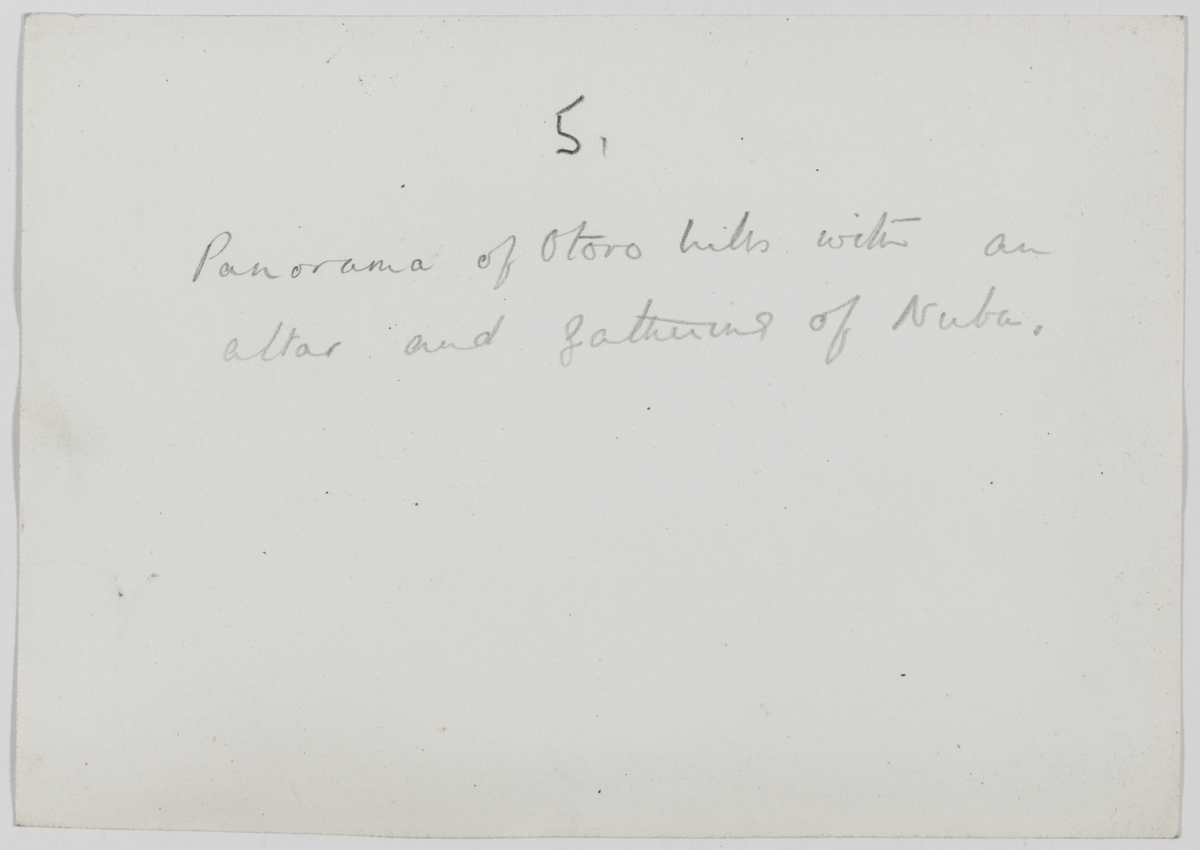 5.
Panorama of Otoro hills with an
altar and gathering of Nuba.